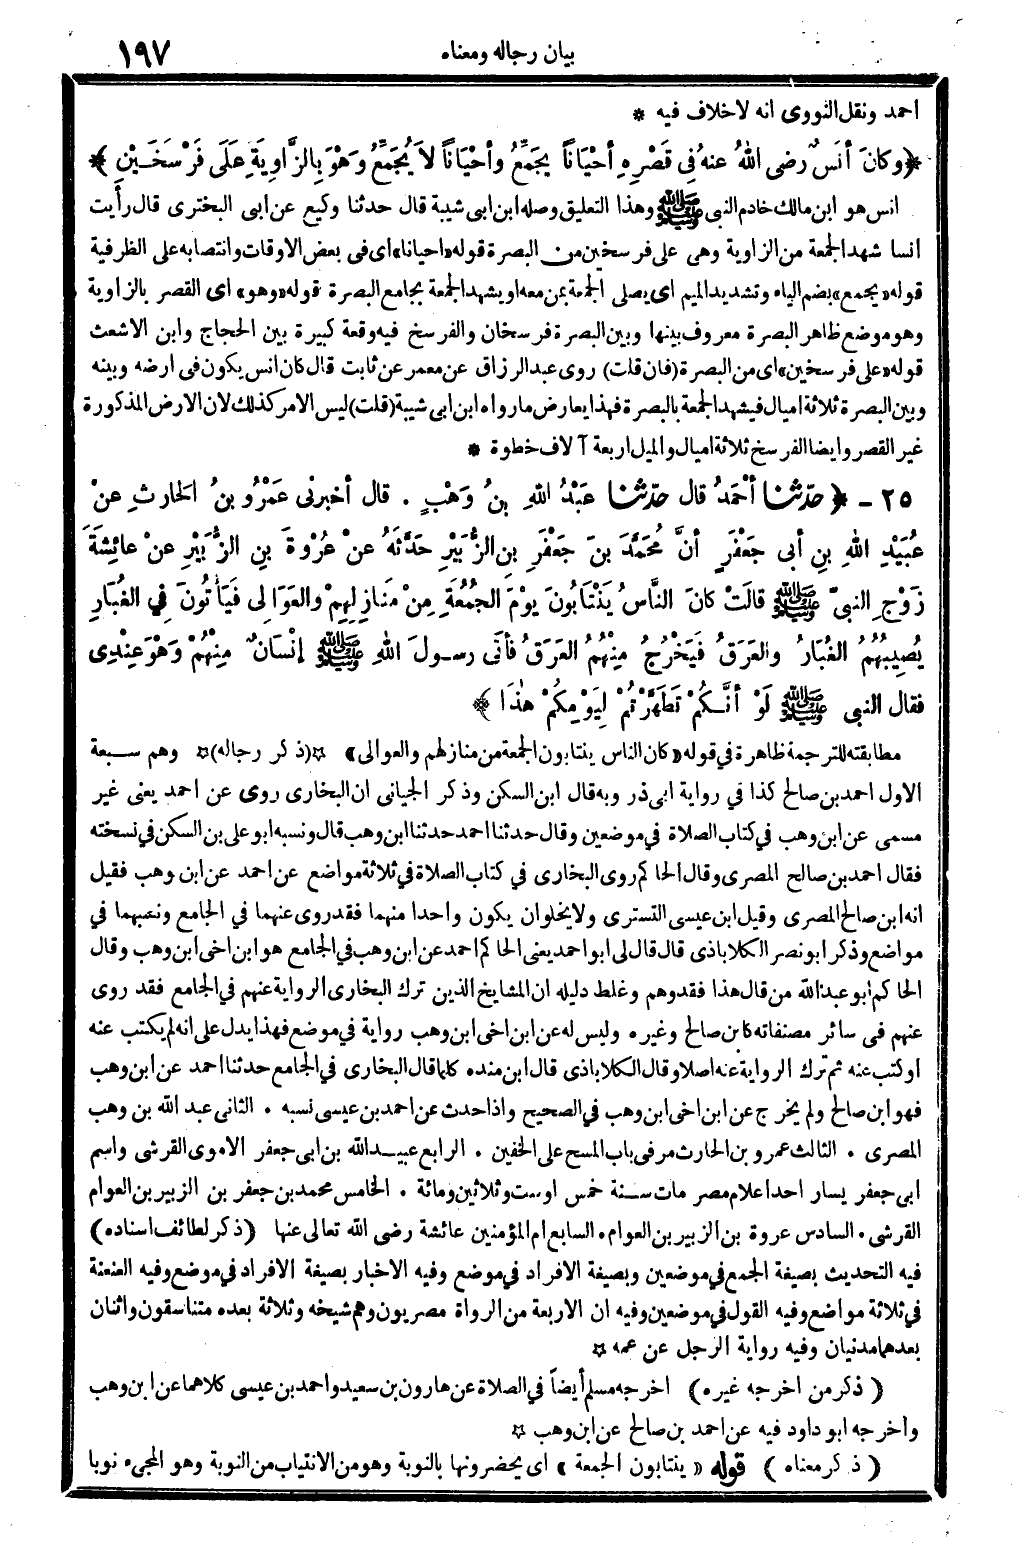 بيان رجاله ومعناه ١٩٧
احمد ونقل النووى انه لا خلاف فيه *
﴿ وكانَ أنَسٌ رضى اللهُ عنهُ فى قَصْرِهِ أحْيَاناً يُجَمِّعُ وأحْيَاناً لاَ يُجَمِّعُ وَهْوَ بِالزَّاوِيَةِ عَلَى فَرْسَخَيْنِ ﴾
انس هو ابن مالك خادم النبى ﷺ وهذا التعليق وصله ابن ابى شيبة قال حدثنا وكيع عن ابى البخترى قال رأيت
انسا شهد الجمعة من الزاوية وهى على فرسخين من البصرة قوله «احيانا» اى فى بعض الاوقات وانتصابه على الظرفية
قوله «يجمع» بضم الياء وتشديد الميم اى يصلى الجمعة بمن معه او يشهد الجمعة بجامع البصرة قوله «وهو» اى القصر بالزاوية
وهو موضع ظاهر البصرة معروف بينها وبين البصرة فرسخان والفرسخ فيه وقعة كبيرة بين الحجاج وابن الاشعث
قوله «على فرسخين» اى من البصرة (فان قلت) روى عبد الرزاق عن معمر عن ثابت قال كان انس يكون فى ارضه وبينه
وبين البصرة ثلاثة اميال فيشهد الجمعة بالبصرة فهذا يعارض ما رواه ابن ابى شيبة (قلت) ليس الامر كذلك لان الارض المذكورة
غير القصر وايضا الفرسخ ثلاثة اميال والميل اربعة آلاف خطوة *
٢٥ - ﴿ حدّثنا أحْمَدُ قال حدّثنا عَبْدُ اللهِ بنُ وَهْبٍ . قال أخبرنى عَمْرُو بنُ الحارثِ عنْ
عُبَيْدِ اللهِ بنِ أبى جَعْفَرٍ أنَّ مُحَمَّدَ بنَ جَعْفَرِ بنِ الزُّبَيْرِ حَدَّثَهُ عنْ عُرْوَةَ بنِ الزُّبَيْرِ عنْ عائِشَةَ
زَوْجِ النبىِّ ﷺ قالَتْ كانَ النَّاسُ يَنْتَابُونَ يوْمَ الجُمُعَةِ مِنْ مَنَازِلِهِمْ والعَوَالِى فَيَأْتُونَ فِي الغُبَارِ
يُصِيبُهُمُ الغُبَارُ والعَرَقُ فَيَخْرُجُ مِنْهُمُ العَرَقُ فأتَى رسولَ اللهِ ﷺ إنْسَانٌ مِنْهُمْ وَهْوَ عِنْدِى
فقال النبى ﷺ لَوْ أنَّكُمْ تَطَهَّرْتُمْ لِيَوْمِكُمْ هٰذَا ﴾
مطابقته للترجمة ظاهرة في قوله «كان الناس ينتابون الجمعة من منازلهم والعوالى» ☆ (ذكر رجاله) ☆ وهم سبعة
الاول احمد بن صالح كذا في رواية ابى ذر وبه قال ابن السكن وذكر الجيانى ان البخارى روى عن احمد يعنى غير
مسمى عن ابن وهب في كتاب الصلاة في موضعين وقال حدثنا احمد حدثنا ابن وهب قال ونسبه ابو على بن السكن في نسخته
فقال احمد بن صالح المصرى وقال الحاكم روى البخارى في كتاب الصلاة في ثلاثة مواضع عن احمد عن ابن وهب فقيل
انه ابن صالح المصرى وقيل ابن عيسى التسترى ولا يخلو ان يكون واحدا منهما فقد روى عنهما في الجامع ونسبهما في
مواضع وذكر ابو نصر الكلاباذى قال قال لى ابو احمد يعنى الحاكم احمد عن ابن وهب في الجامع هو ابن اخى ابن وهب وقال
الحاكم أبو عبد الله من قال هذا فقد وهم وغلط دليله ان المشايخ الذين ترك البخارى الرواية عنهم في الجامع فقد روى
عنهم فى سائر مصنفاته كابن صالح وغيره وليس له عن ابن اخى ابن وهب رواية في موضع فهذا يدل على انه لم يكتب عنه
او كتب عنه ثم ترك الرواية عنه اصلا وقال الكلاباذى قال ابن منده كلما قال البخارى في الجامع حدثنا احمد عن ابن وهب
فهو ابن صالح ولم يخرج عن ابن اخى ابن وهب في الصحيح واذا حدث عن احمد بن عيسى نسبه . الثانى عبد الله بن وهب
المصرى . الثالث عمرو بن الحارث مر فى باب المسح على الخفين . الرابع عبيد الله بن ابى جعفر الاموى القرشى واسم
ابى جعفر يسار احد اعلام مصر مات سنة خمس اوست وثلاثين ومائة . الخامس محمد بن جعفر بن الزبير بن العوام
القرشى . السادس عروة بن الزبير بن العوام . السابع ام المؤمنين عائشة رضى الله تعالى عنها (ذكر لطائف اسناده)
فيه التحديث بصيغة الجمع في موضعين وبصيغة الافراد في موضع وفيه الاخبار بصيغة الافراد في موضع وفيه العنعنة
في ثلاثة مواضع وفيه القول في موضعين وفيه ان الاربعة من الرواة مصريون وهم شيخه وثلاثة بعده متناسقون واثنان
بعدهما مدنيان وفيه رواية الرجل عن عمه ☆
(ذكر من اخرجه غيره) اخرجه مسلم أيضاً في الصلاة عن هارون بن سعيد واحمد بن عيسى كلاهما عن ابن وهب
وأخرجه ابو داود فيه عن احمد بن صالح عن ابن وهب ☆
(ذكر معناه) قوله «ينتابون الجمعة» اى يحضرونها بالنوبة وهو من الانتياب من النوبة وهو المجىء نوبا